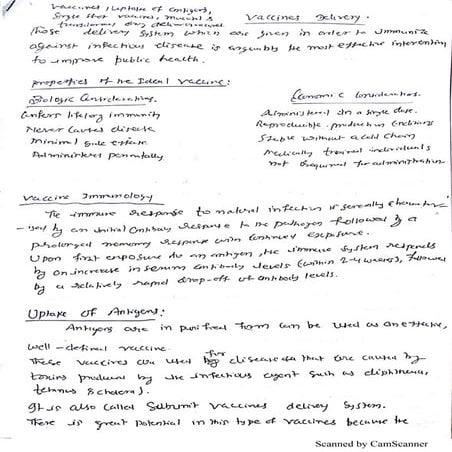 Vaccines (Uptake of Antigens,
Single shot vaccines, mucosal &
transdermal drug delivery
Vaccines Delivery.
Those delivery system which are given in order to immunize
against infectious disease is arguably the most effective intervention
to improve public health.
Properties of the Ideal Vaccine:
Biologic Considerations.
Confers lifelong immunity
Never causes disease
Minimal side effects
Administered perorally
Economic Considerations.
Administered in a single dose.
Reproducible production
Stable without a cold chain
Medically trained individuals
not required for administration
Vaccine Immunology
The immune response to natural infection is generally character
-ised by an initial antibody response to the pathogen followed by a
prolonged memory response with continued exposure.
Upon first exposure to an antigen, the immune system responds
by an increase in serum antibody levels (within 2-4 weeks), followed
by a relatively rapid drop-off of antibody levels.
Uptake of Antigens:
Antigens are in purified form can be used as an effective,
well-defined vaccine.
These vaccines are used for diseases that are caused by
toxins produced by the infectious agent such as diphtheria,
tetanus & cholera).
It is also called Subunit vaccines delivery system.
There is great potential in this type of vaccines because the
Scanned by CamScanner